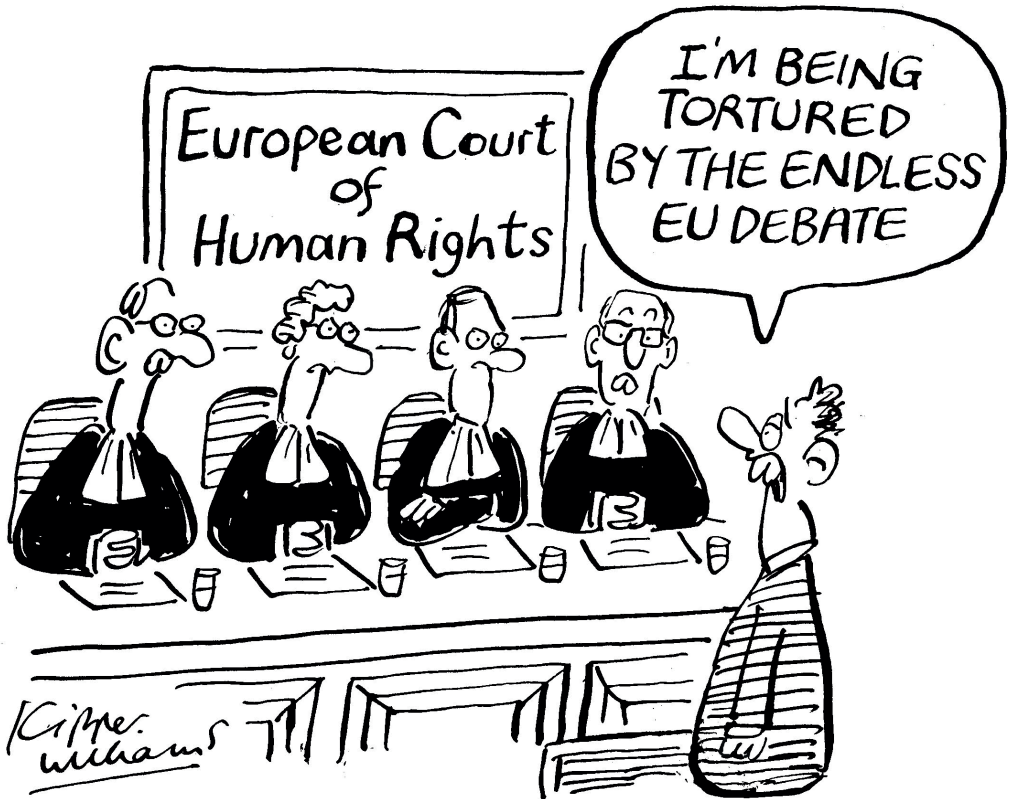 European Court
of
Human Rights
I'M BEING
TORTURED
BY THE ENDLESS
EU DEBATE
Kipper
Williams